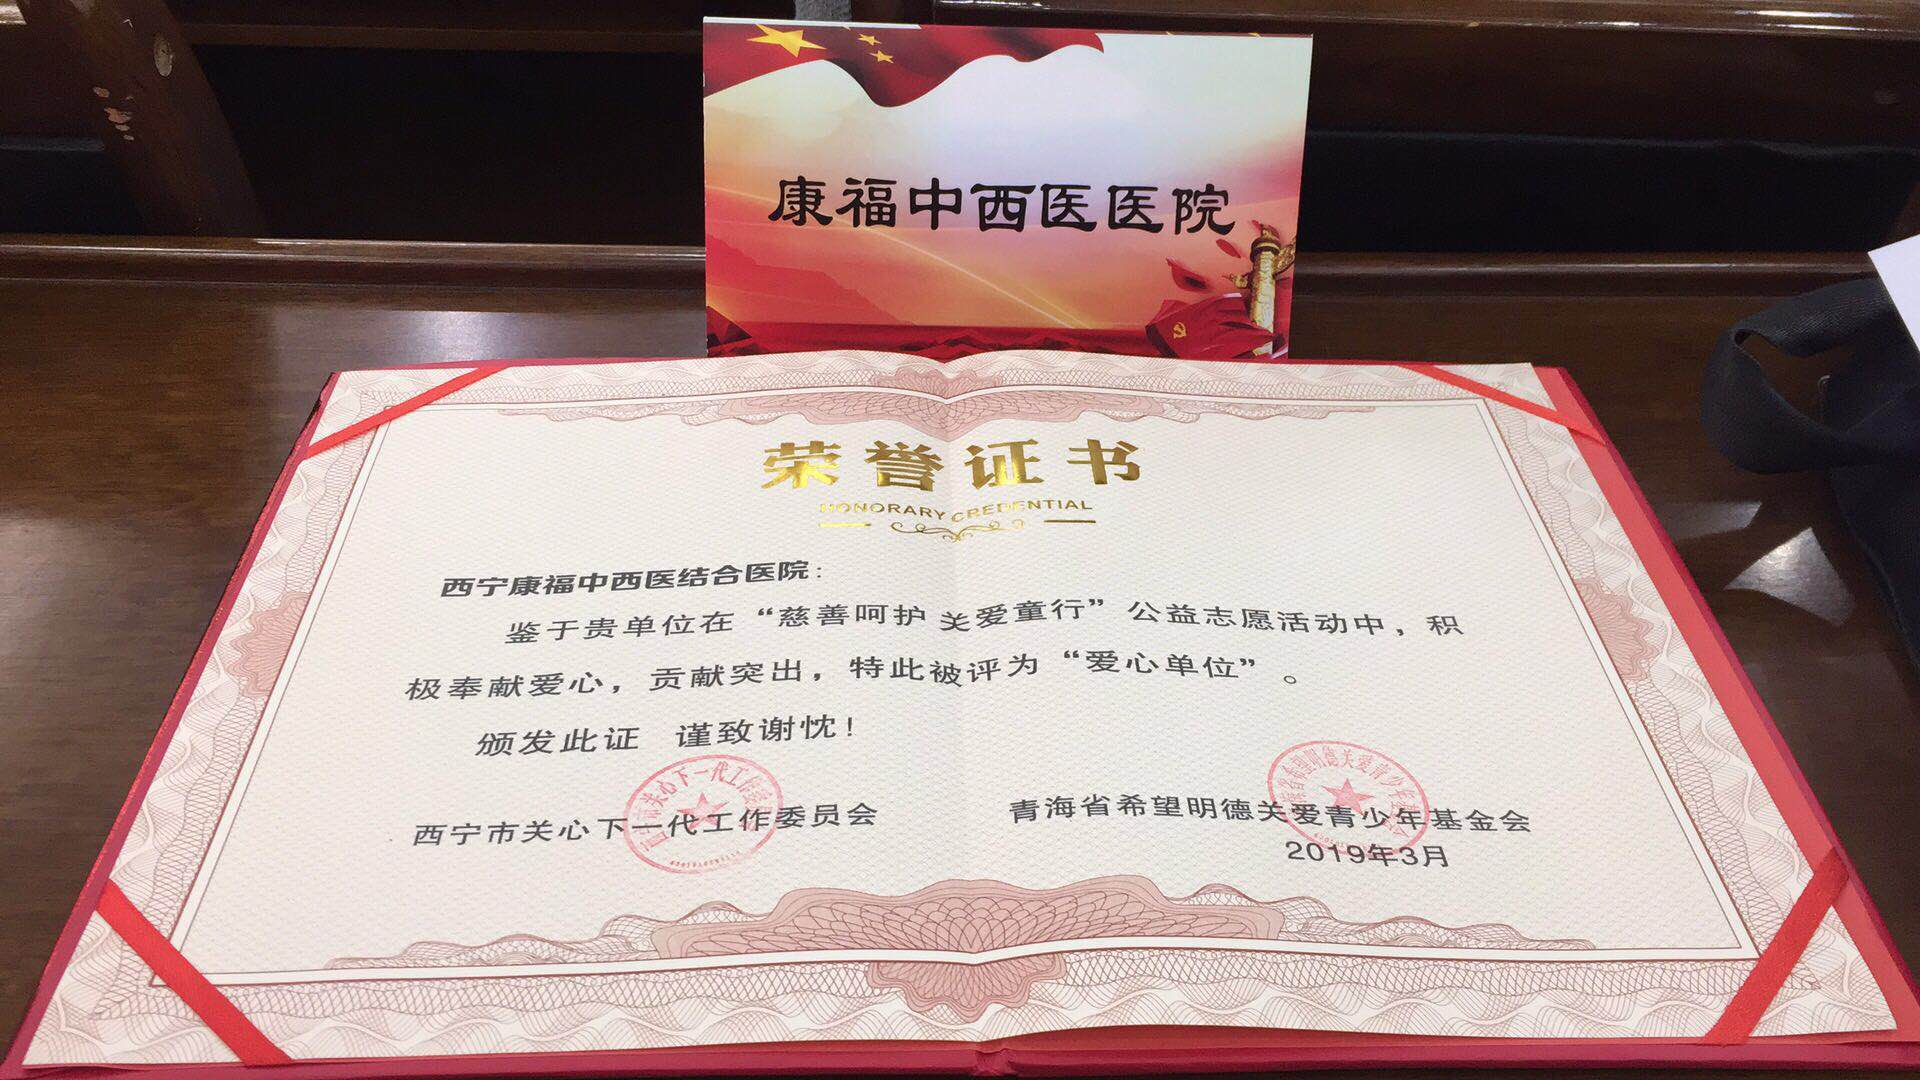 康福中西医医院
荣誉证书
HONORARY CREDENTIAL
西宁康福中西医结合医院：
鉴于贵单位在“慈善呵护 关爱童行”公益志愿活动中，积
极奉献爱心，贡献突出，特此被评为“爱心单位”。
颁发此证 谨致谢忱！
西宁市关心下一代工作委员会
青海省希望明德关爱青少年基金会
2019年3月